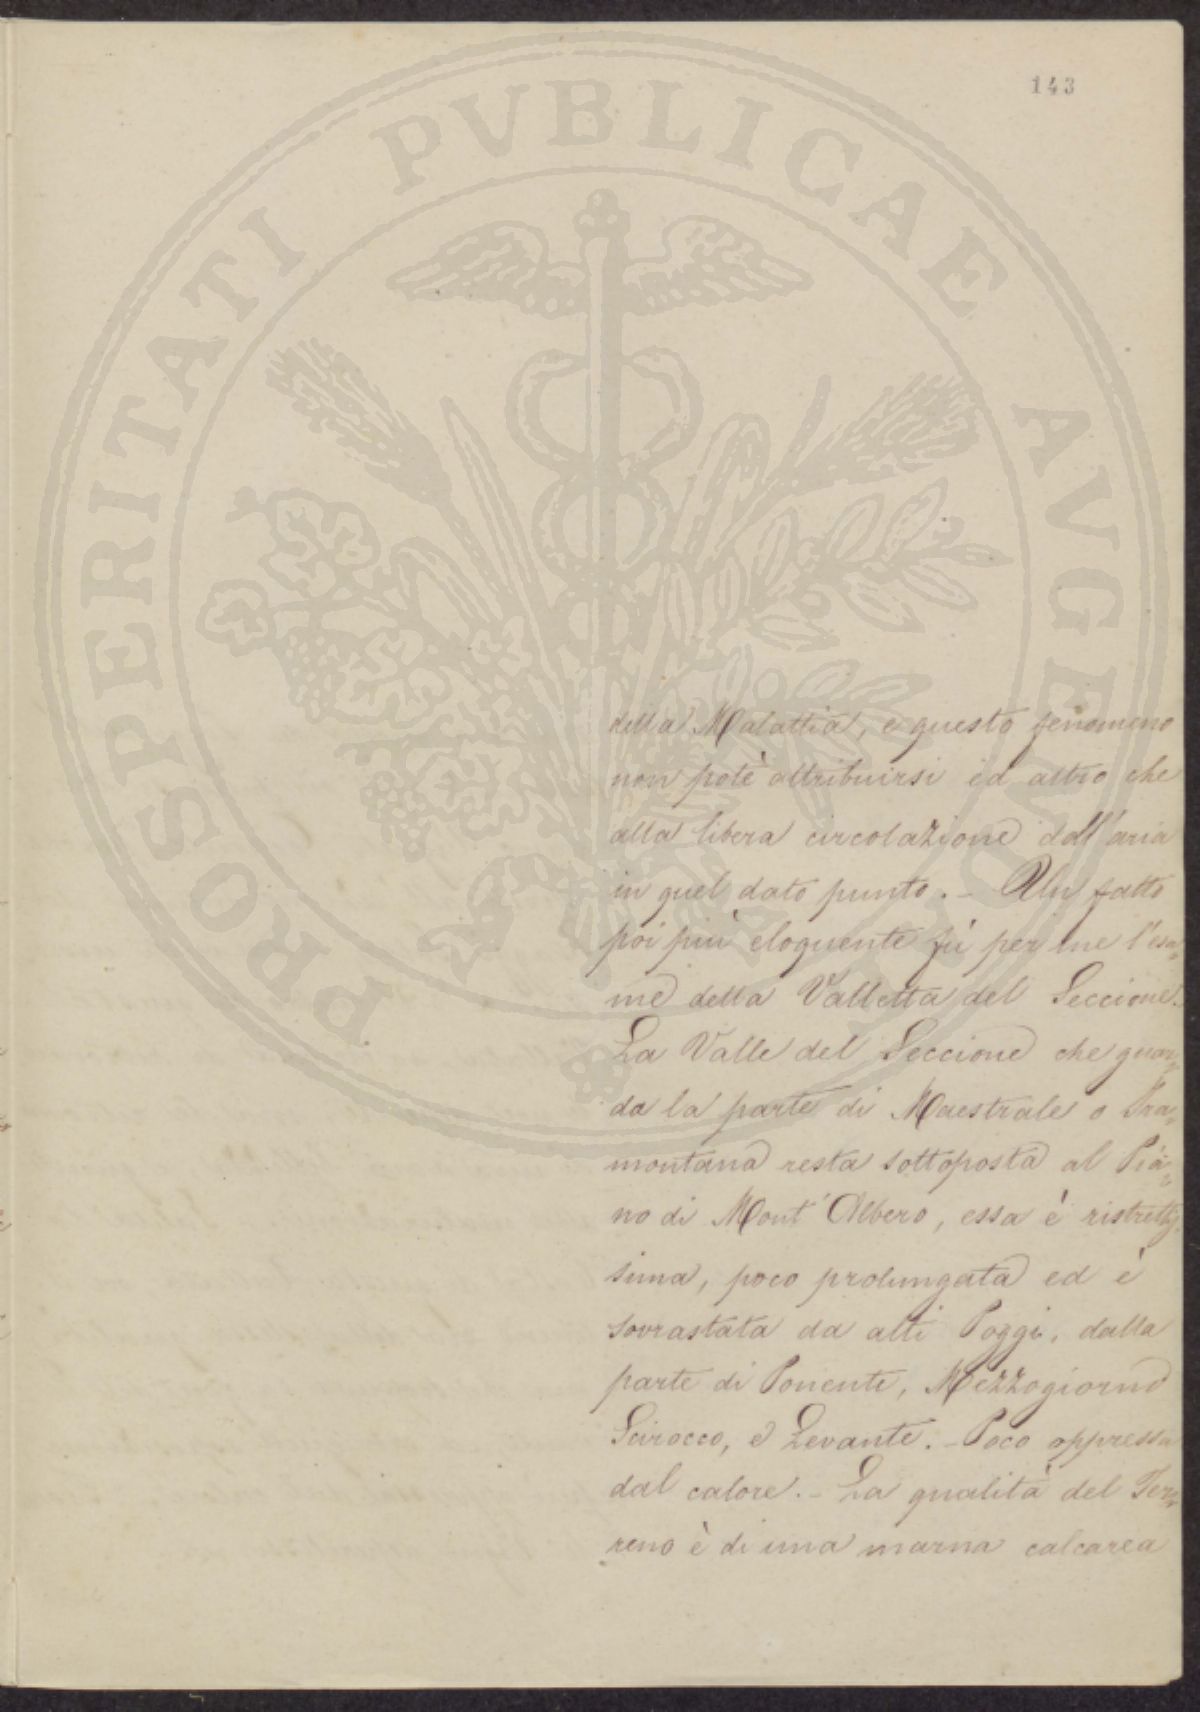 143
PROSPERITATI PVBLICAE AVGENDAE
della Malattia, e questo fenomeno
non potè attribuirsi ed altro che
alla libera circolazione dell'aria
in quel dato punto. - Un fatto
poi più eloquente fù per me l'esa=
me della Valletta del Leccione.
La Valle del Leccione che guar=
da la parte di Maestrale o Tra=
montana resta sottoposta al Pia=
no di Mont'Albero, essa è ristrettis
sima, poco prolungata ed è
sovrastata da alti Poggi, dalla
parte di Ponente, Mezzogiorno
Scirocco, e Levante. - Poco oppressa
dal calore. - La qualità del Ter=
reno è di una marna calcarea